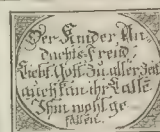 Der Kinder An-
dachts-Freud
Liebt Gott Zu aller Zeit
auch kan ihr Lallē
Ihm wohl ge
fallen.